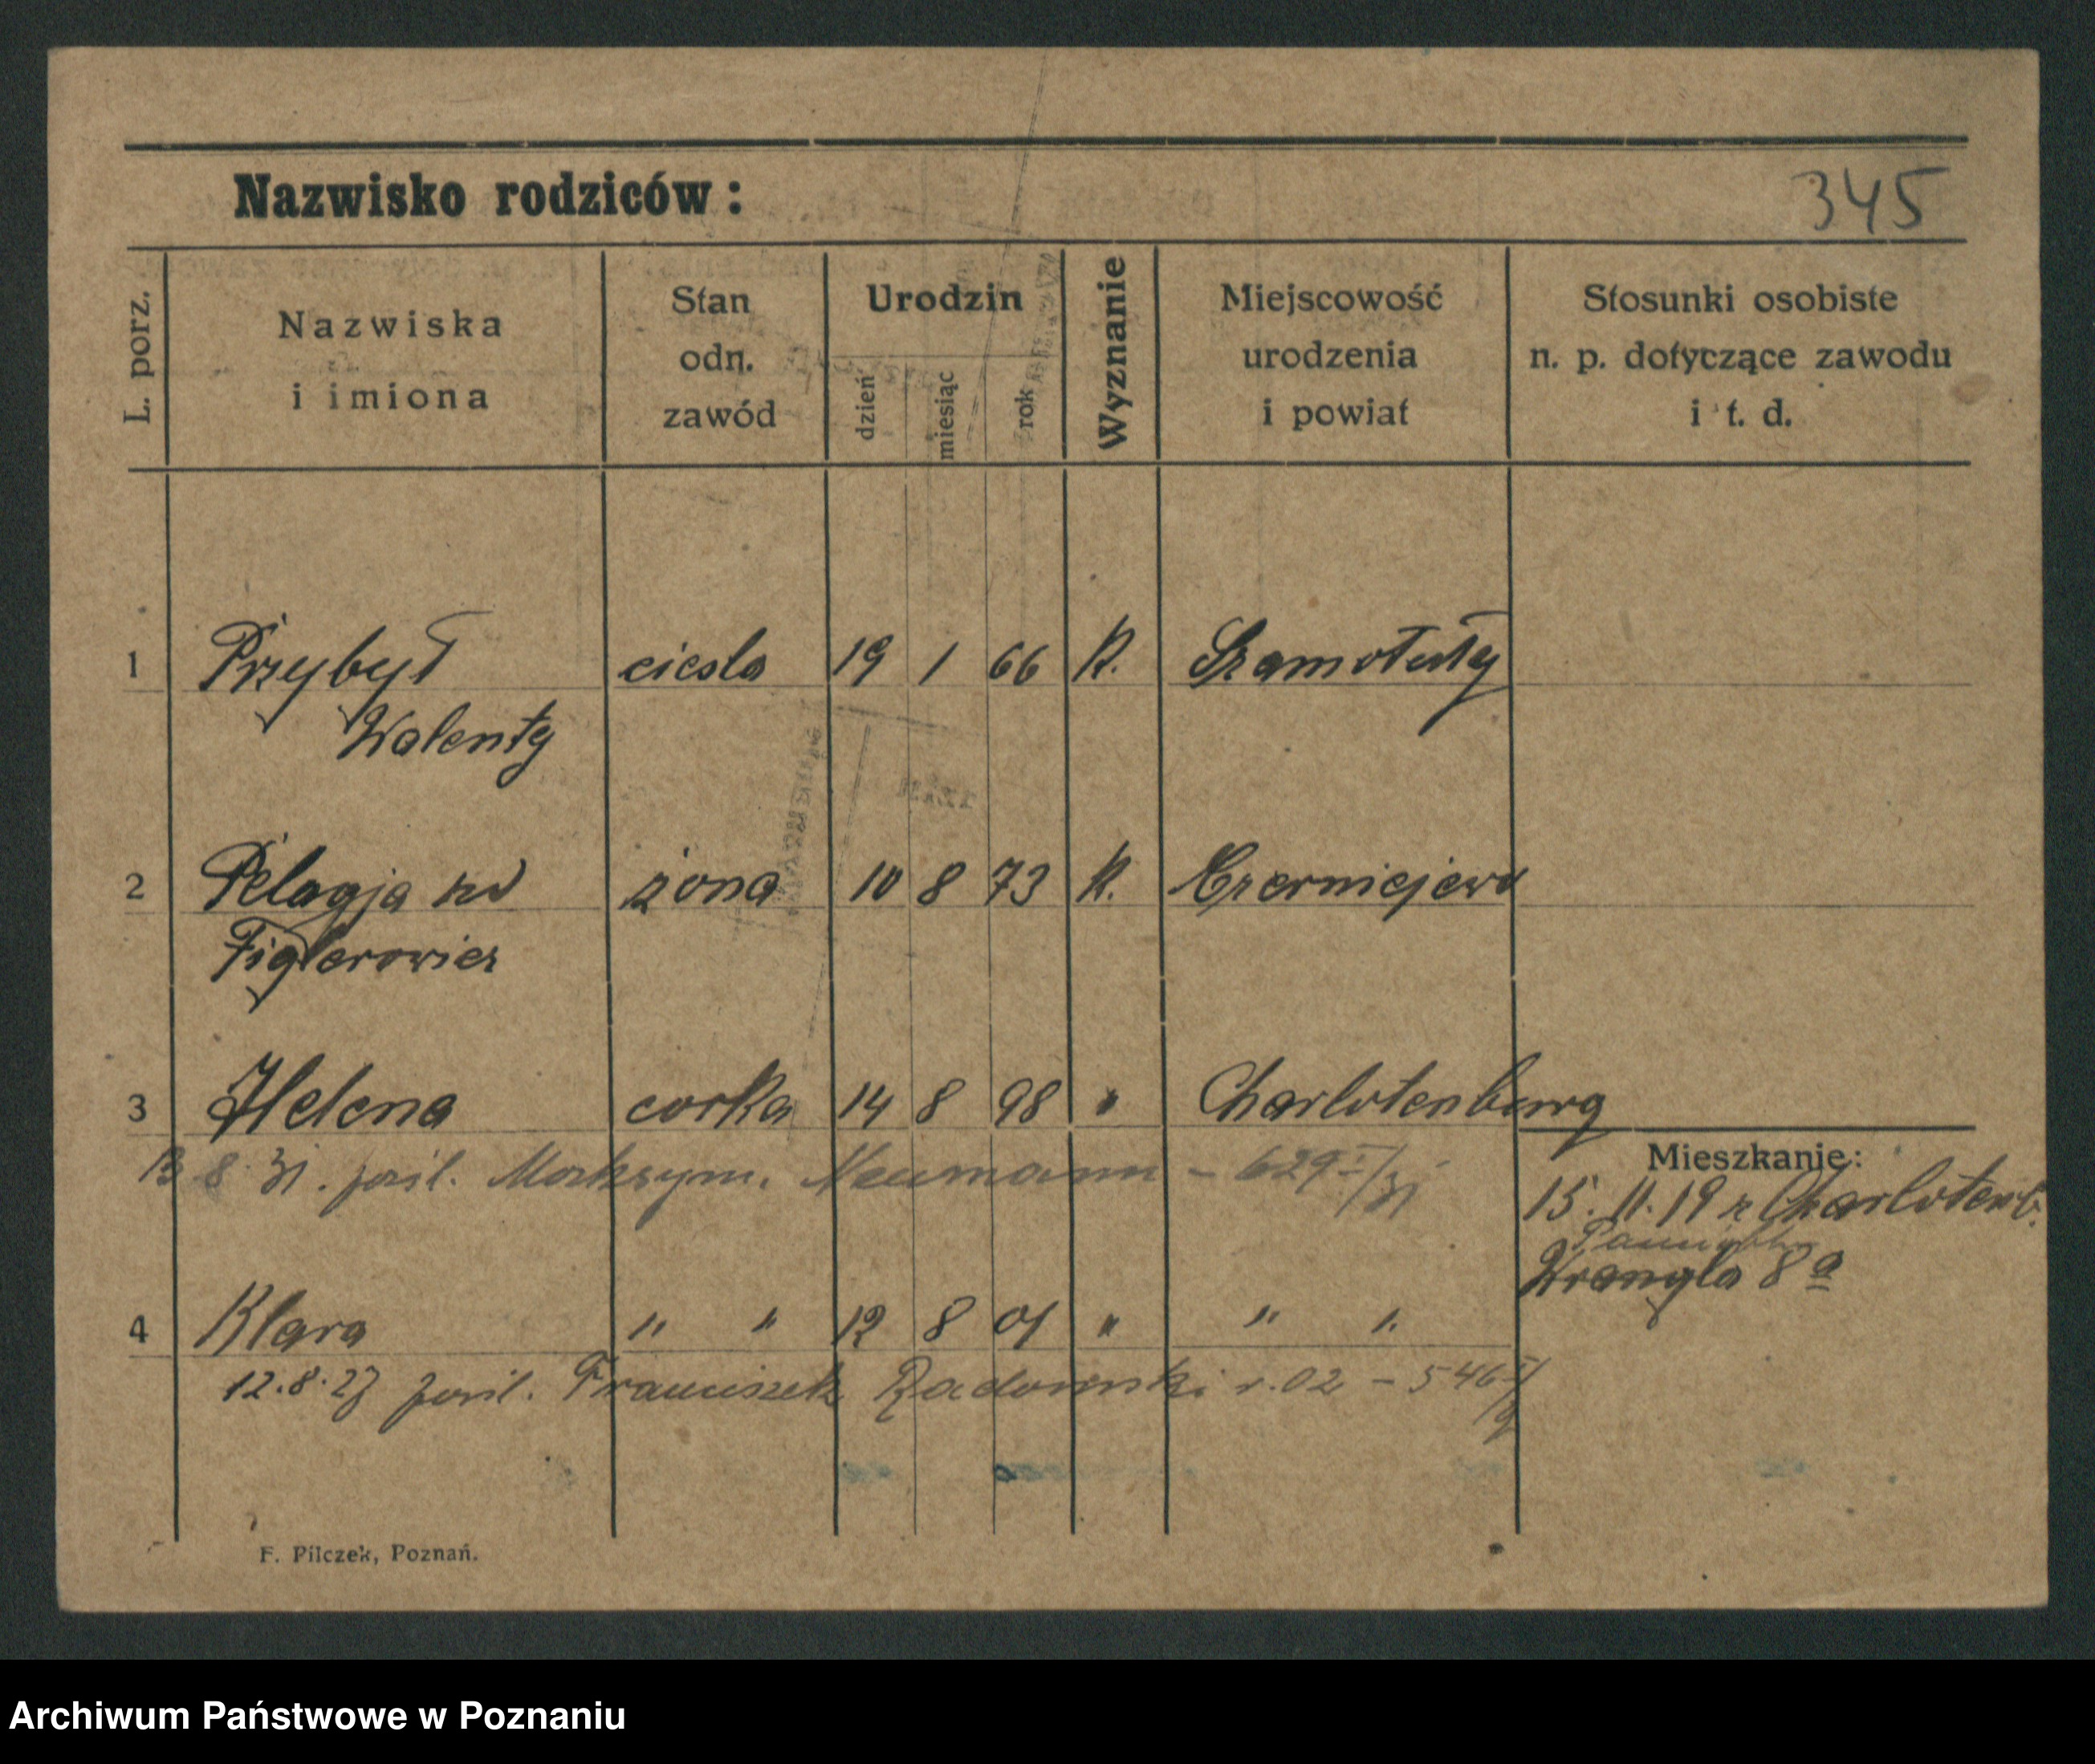 Nazwisko rodziców:
345
L. porz.
Nazwiska
i imiona
Stan
odn.
zawód
Urodzin
dzień
miesiąc
rok
Wyznanie
Miejscowość
urodzenia
i powiat
Stosunki osobiste
n. p. dotyczące zawodu
i t. d.
1 Przybył ciesla 19 1 66 K. Szamotuły
Walenty
2 Pelagja zd żona 10 8 73 K. Czerniejewo
Figlerowicz
3 Helena corka 14 8 98 " Charlotenburg
13 8 31. pośl. Maksym. Neumann - 629 I/31
Mieszkanie:
15. 11. 19 z Charlotenb.
Wrangla 8 a
4 Klara " " 12 8 01 " " "
12.8.27 pośl. Franciszek Radomski r. 02 - 546
F. Pilczek, Poznań.
Archiwum Państwowe w Poznaniu